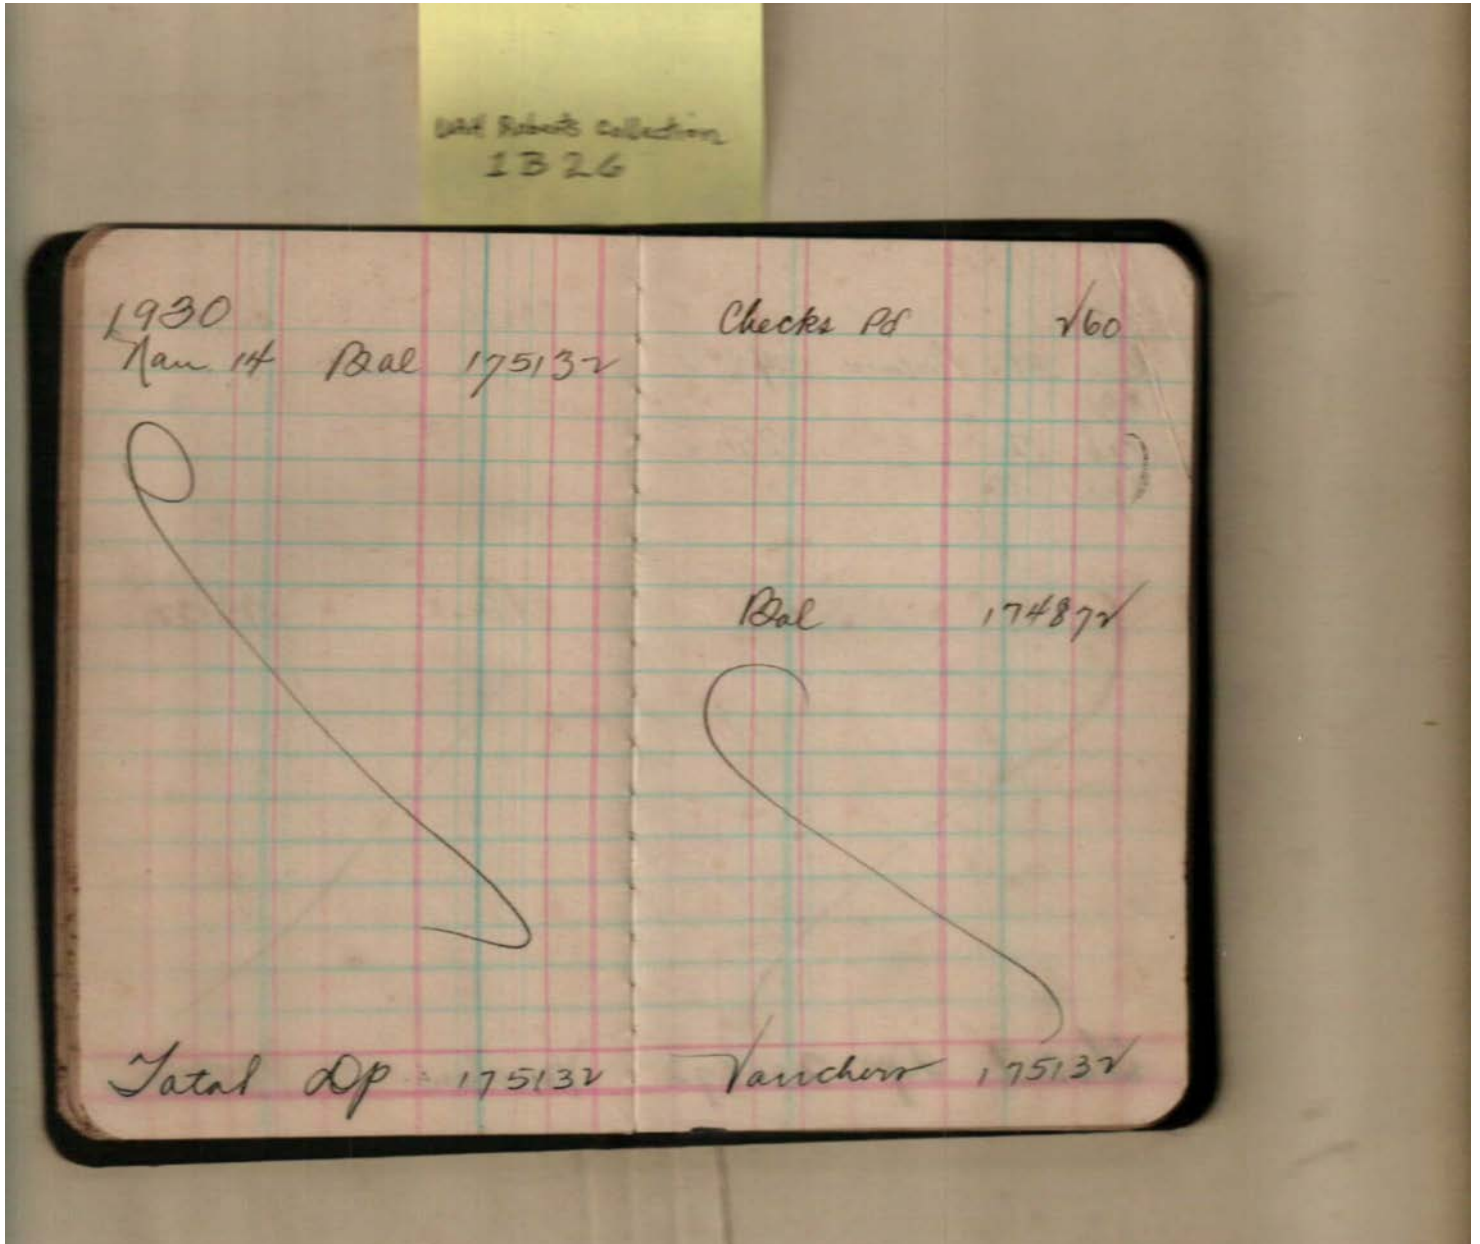 UAH Roberts Collection
1326
1930
Jan 14 Bal 175132
Total Dp 175132
Checks Pd 260
Bal 174872
Vouchers 175132